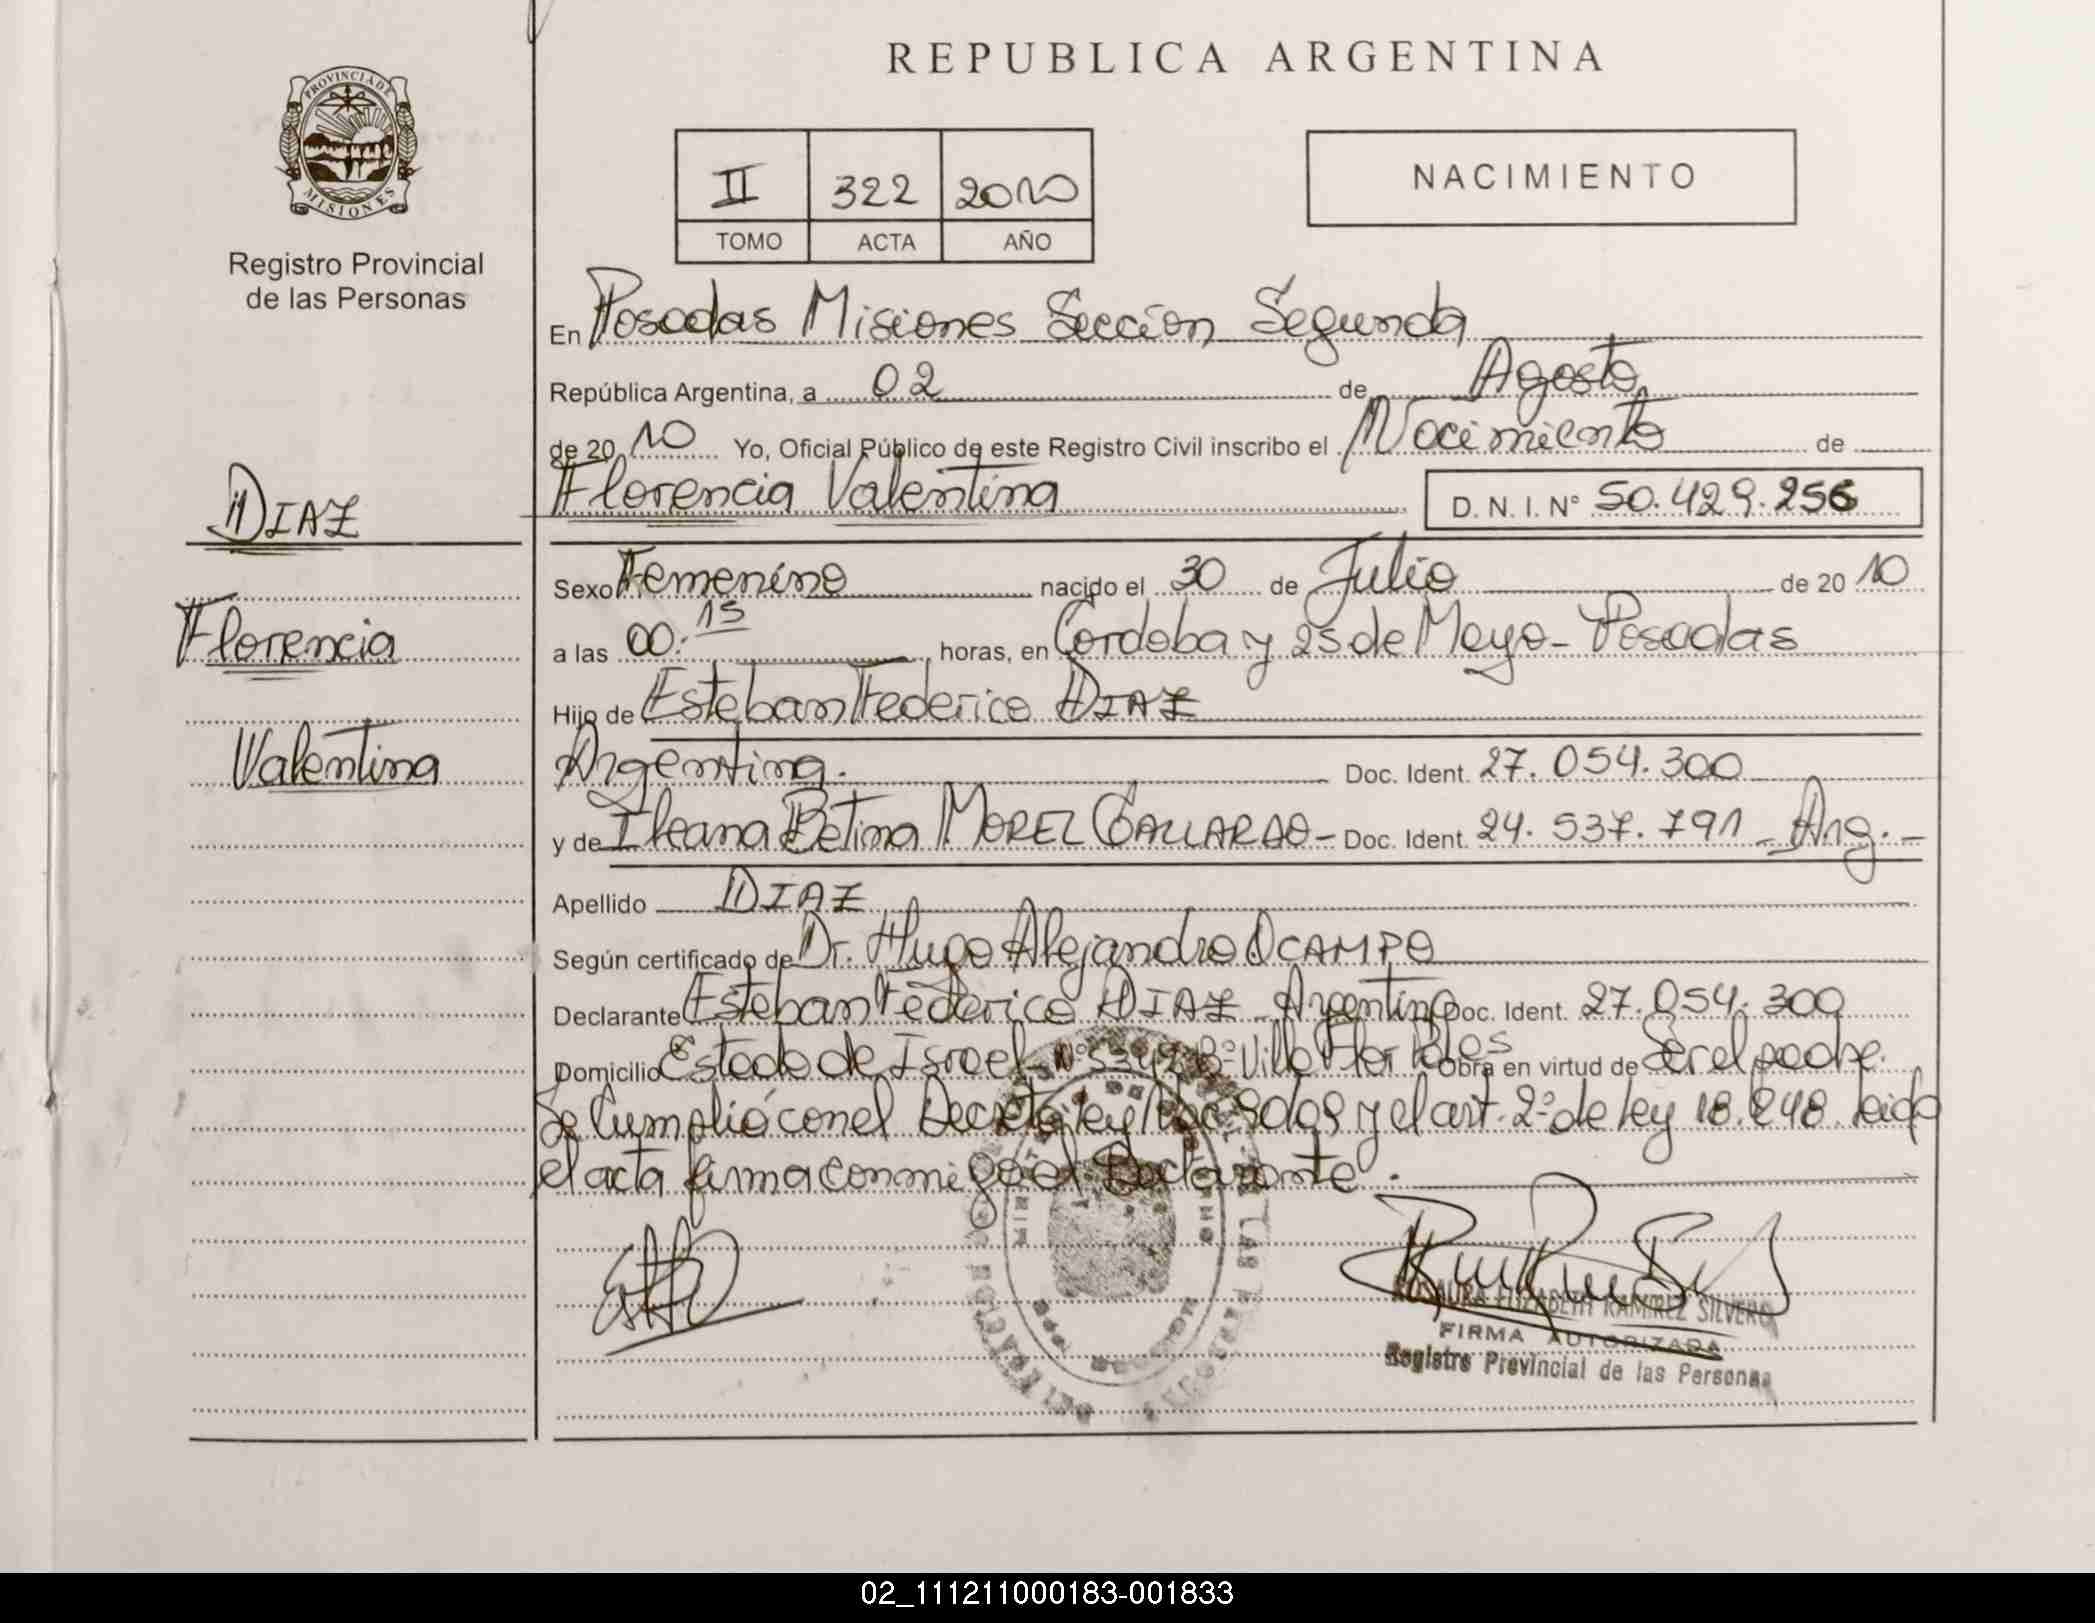 REPUBLICA ARGENTINA
PROVINCIA DE MISIONES
Registro Provincial
de las Personas
II 322 2010
TOMO ACTA AÑO
NACIMIENTO
En Posadas Misiones Sección Segunda
República Argentina, a 02 de Agosto
de 20 10 Yo, Oficial Público de este Registro Civil inscribo el Nacimiento de
Florencia Valentina D. N. I. N° 50.429.256
DIAZ
Florencia
Valentina
Sexo Femenino nacido el 30 de Julio de 20 10
a las 00:15 horas, en Cordoba y 25 de Mayo - Posadas
Hijo de Esteban Federico DIAZ
Argentina. Doc. Ident. 27.054.300
y de Ileana Betina MOREL GALLARDO - Doc. Ident. 24.537.791 - Arg. -
Apellido DIAZ
Según certificado de Dr. Hugo Alejandro OCAMPO
Declarante Esteban Federico DIAZ - Argentino Doc. Ident. 27.054.300
Domicilio Estado de Israel N° 5342 B° Villa Obra en virtud de Ser el padre.
Se Cumplió con el Decreto ley y el art. 2° de ley 18.248. leida
el acta firma conmigo el Declarante.
ROSAURA ELIZABETH RAMIREZ SILVERO
FIRMA AUTORIZADA
Registro Provincial de las Personas
02_111211000183-001833